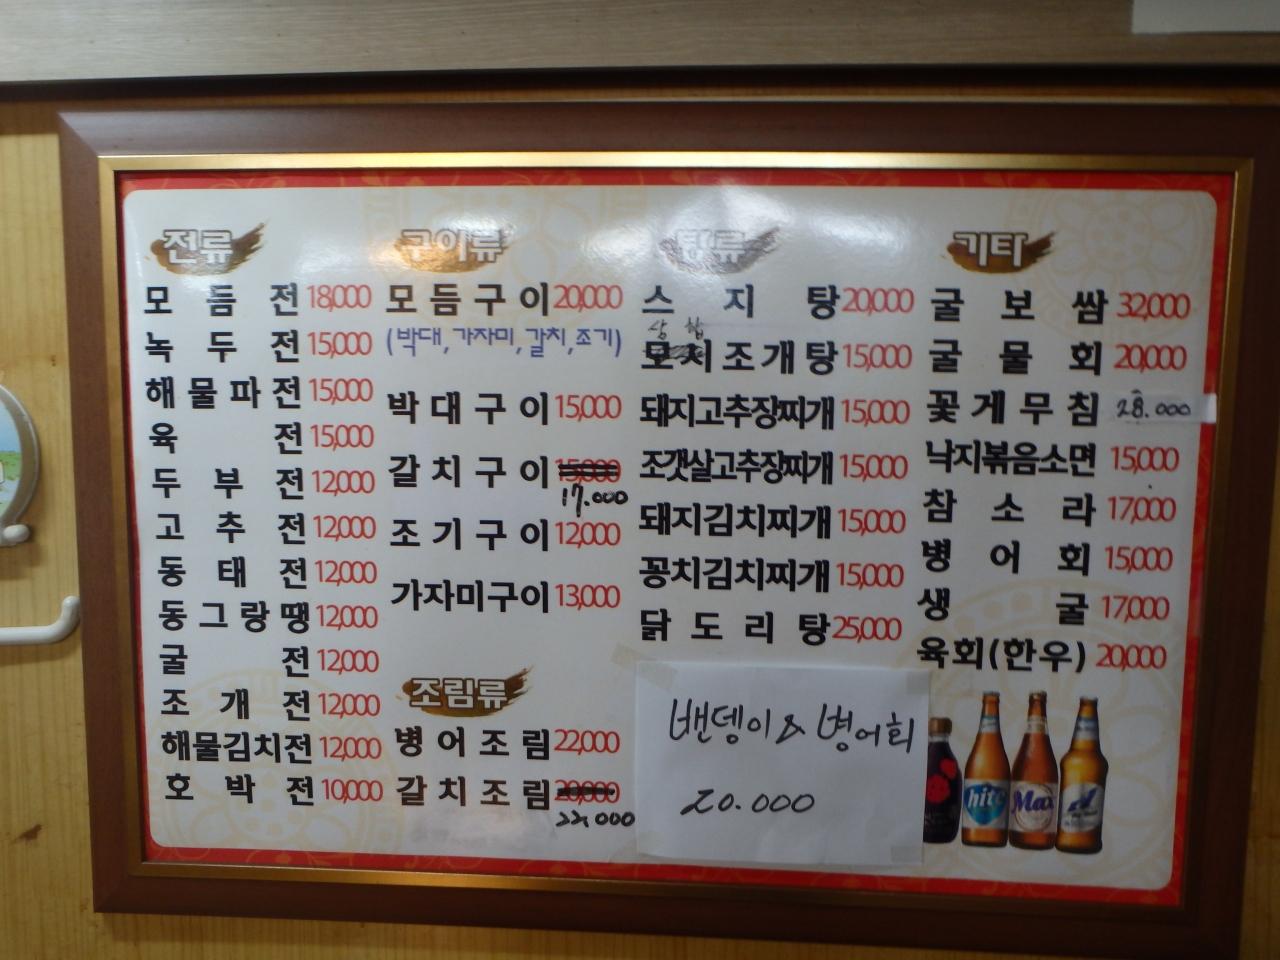 전류
모듬전 18,000
녹두전 15,000
해물파전 15,000
육전 15,000
두부전 12,000
고추전 12,000
동태전 12,000
동그랑땡 12,000
굴전 12,000
조개전 12,000
해물김치전 12,000
호박전 10,000
구이류
모듬구이 20,000
(박대, 가자미, 갈치, 조기)
박대구이 15,000
갈치구이 15,000
17.000
조기구이 12,000
가자미구이 13,000
조림류
병어조림 22,000
갈치조림 20,000
22,000
탕류
스지탕 20,000
상합
모시조개탕 15,000
돼지고추장찌개 15,000
조갯살고추장찌개 15,000
돼지김치찌개 15,000
꽁치김치찌개 15,000
닭도리탕 25,000
밴뎅이 & 병어회
20.000
기타
굴보쌈 32,000
굴물회 20,000
꽃게무침 28.000
낙지볶음소면 15,000
참소라 17,000
병어회 15,000
생굴 17,000
육회(한우) 20,000
hite
Max